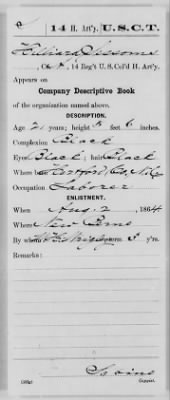 14 H. Art'y. U.S.C.T.
Hilliard Sessoms
, Co. A, 14 Reg't U.S. Col'd H. Art'y.
Appears on
Company Descriptive Book
of the organization named above.
DESCRIPTION.
Age 21 years; height 5 feet 6 inches.
Complexion Black
Eyes Black; hair Black
Where born Hertford Co, N.C.
Occupation Laborer
ENLISTMENT.
When Aug. 2, 1864
Where New Berne
By whom term 3 y'rs.
Remarks:
Copyist.